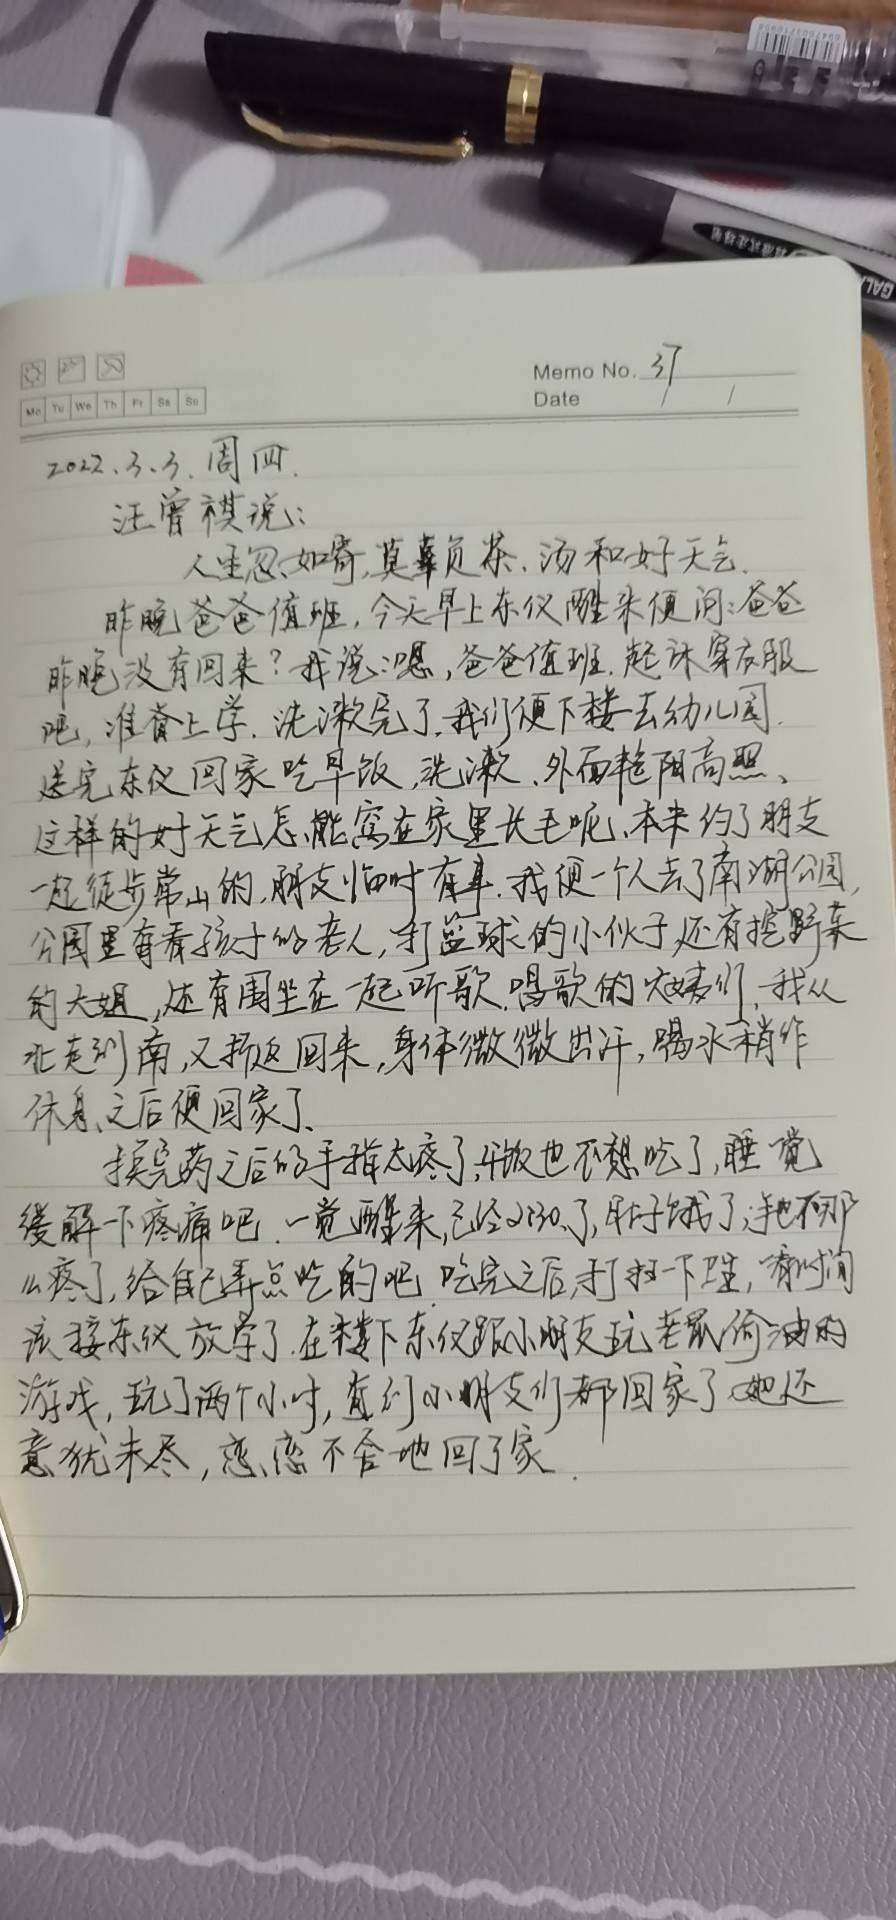 Memo No. 37
Mo Tu We Th Fr Sa Su
Date / /
2022.3.3.周四.
汪曾祺说:
人生忽如寄,莫辜负茶.汤和好天气.
昨晚爸爸值班,今天早上东仪醒来便问:爸爸
昨晚没有回来?我说:嗯,爸爸值班.起床穿衣服
吧,准备上学.洗漱完了,我们便下楼去幼儿园.
送完东仪回家吃早饭,洗漱、外面艳阳高照、
这样的好天气怎能窝在家里长毛呢、本来约了朋友
一起徒步常山的,朋友临时有事.我便一个人去了南湖公园,
公园里有看孩子的老人,打篮球的小伙子,还有挖野菜
的大姐,还有围坐在一起听歌.唱歌的大姨们,我从
北走到南,又折返回来,身体微微出汗,喝水稍作
休息、之后便回家了、
换完药之后的手指太疼了,午饭也不想吃了,睡觉
缓解一下疼痛吧.一觉醒来,已经2:30.了,肚子饿了,手也不那
么疼了,给自己弄点吃的吧.吃完之后,打扫一下卫生,时间
该接东仪放学了.在楼下东仪跟小朋友玩老鼠偷油的
游戏,玩了两个小时,直到小朋友们都回家了她还
意犹未尽,恋恋不舍地回了家.